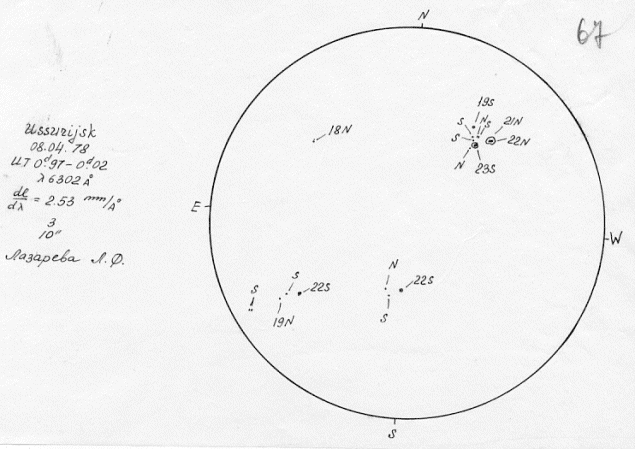 67
N
Ussurijsk
08.04.78
UT 0ᵈ.97 – 0ᵈ.02
λ 6302 Å
dl/dλ = 2.53 mm/Å
3
10"
Лазарева Л.Ф.
18N
19S
S N S 21N
S 22N
N 23S
E
W
S S 22S
19N
N 22S
S
S